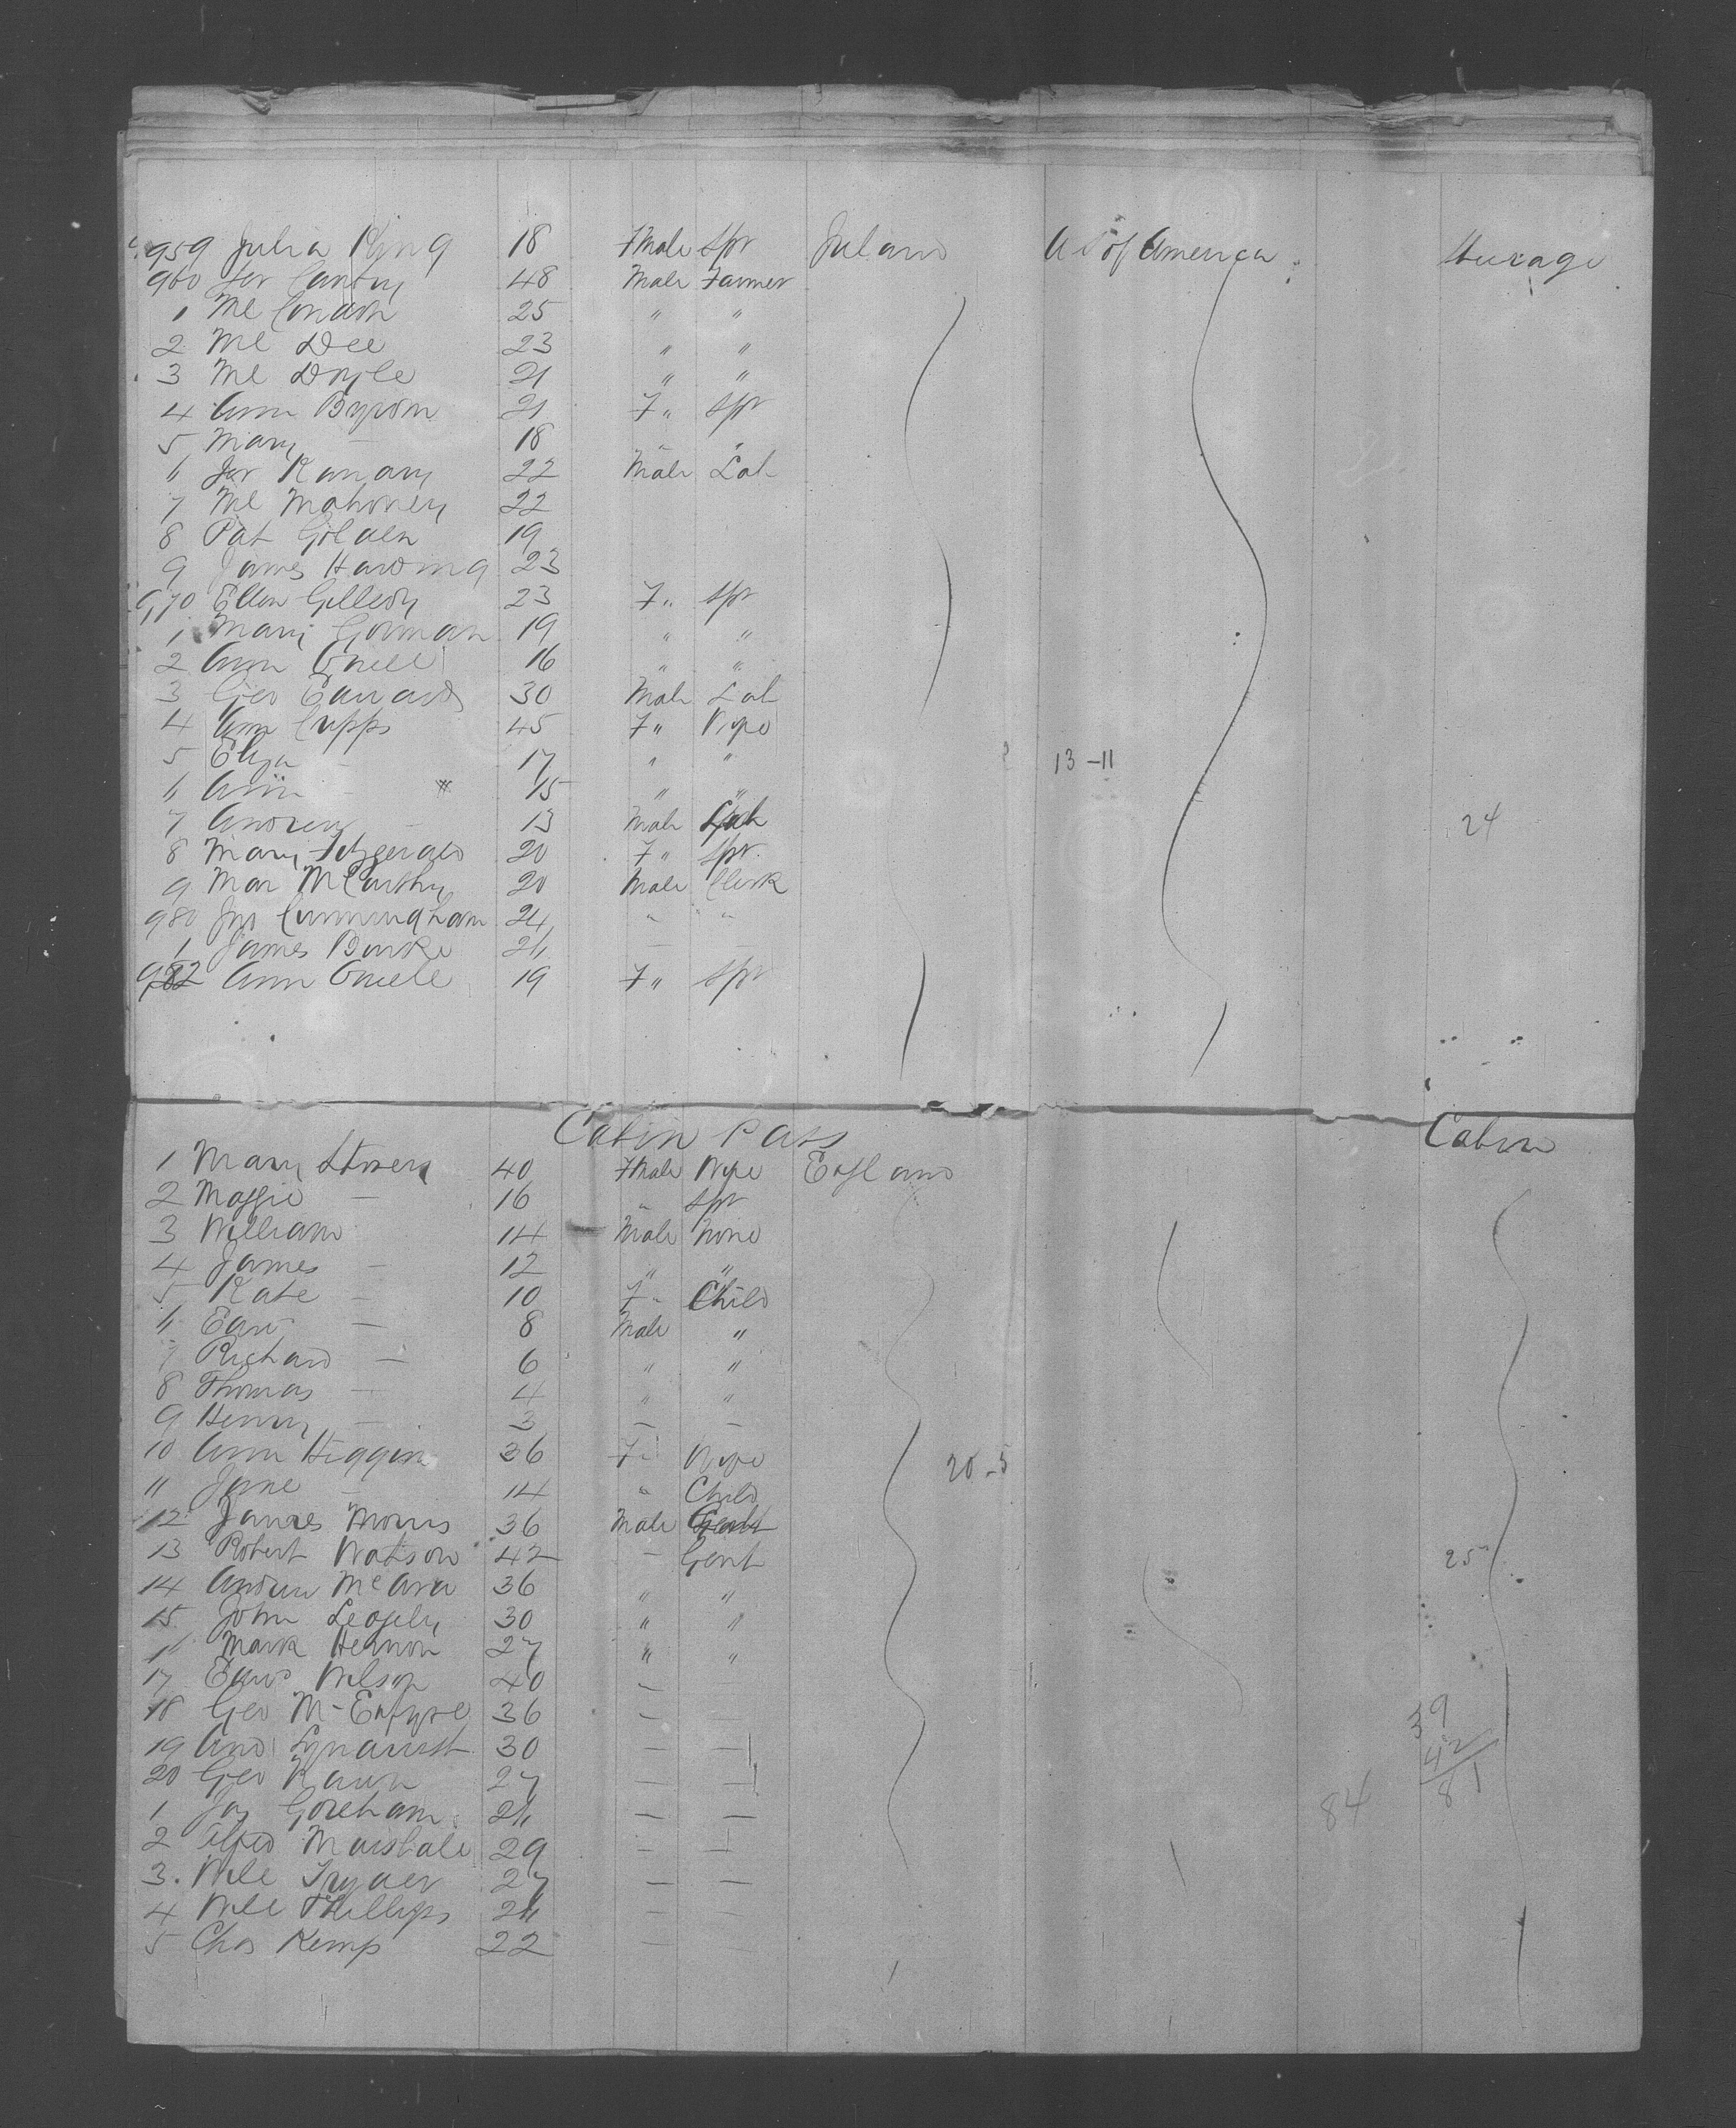 959 Julia King 18 Fmale Spr Ireland U S of America Steerage
960 Jer Canty 48 Male Farmer
1 Ml 25 " "
2 Ml Dee 23 " "
3 Ml Doyle 21 " "
4 Ann Byrom 21 F " Spr
5 Mary — 18 " "
6 Jer 22 Male Lab
7 Ml Mahoney 22
8 Pat Golden 19
9 James Harding 23
970 Ellen 23 F " Spr
1 Mary Gorman 19 " "
2 Ann Oneill 16 " "
3 Geo Edwards 30 Male Lab
4 Ann Cupps 45 F " Wife
5 Eliza — 17 " "
13-11
6 Ann — 15 " "
7 Andrew — 13 Male Lab
24
8 Mary Fitzgerald 20 F " Spr
9 Mar McCarthy 20 Male Clerk
980 Jno Cunningham 24 " "
1 James Burke 26 —
982 Ann Oneill 19 F " Spr
Cabin Pass Cabin
1 Mary 40 Fmale Wife England
2 Maggie — 16 " Spr
3 William 14 Male None
4 James — 12 " "
5 Kate — 10 F " Child
6 Edwd — 8 Male "
7 Richard — 6 " "
8 Thomas — 4 " "
9 Henry — 3 — —
10 Ann Higgins 36 F " Wife
20-5
11 Jane — 14 " Child
12 James Morris 36 Male Gent
13 Robert Watson 42 — Gent
25
14 Andrew McAra 36 " "
15 John 30 " "
16 Mark 27 " "
17 Edwd Wilson 40 — —
18 Geo McEntyre 36 — —
39
19 And 30 — —
42
20 Geo 27 — —
81
84
1 Jas Goreham 26 — —
2 Alfred Marshall 29 — —
3. Will 27 — —
4 Will Phillips 26 — —
5 Chas Kemp 22 — —